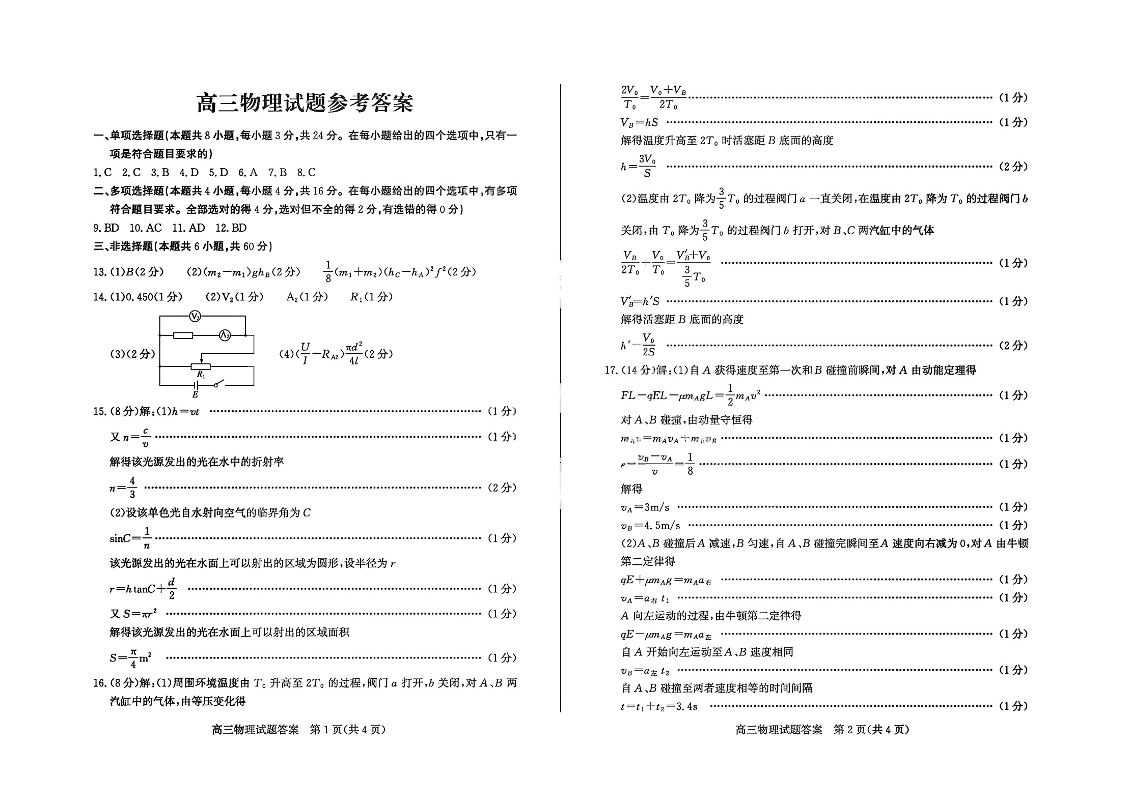 高三物理试题参考答案
一、单项选择题(本题共 8 小题,每小题 3 分,共 24 分。在每小题给出的四个选项中,只有一
项是符合题目要求的)
1. C 2. C 3. B 4. D 5. D 6. A 7. B 8. C
二、多项选择题(本题共 4 小题,每小题 4 分,共 16 分。在每小题给出的四个选项中,有多项
符合题目要求。全部选对的得 4 分,选对但不全的得 2 分,有选错的得 0 分)
9. BD 10. AC 11. AD 12. BD
三、非选择题(本题共 6 小题,共 60 分)
13. (1)B(2 分) (2)(m₂−m₁)gh_B(2 分) 1/8(m₁+m₂)(h_C−h_A)²f²(2 分)
14. (1)0.450(1 分) (2)V₂(1 分) A₂(1 分) R₁(1 分)
V₂
A₂
(3)(2 分) (4)(U/I−R_A2)πd²/4l(2 分)
R₁
E
15. (8 分)解:(1)h=vt ……………… (1 分)
又 n=c/v ……………… (1 分)
解得该光源发出的光在水中的折射率
n=4/3 ……………… (2 分)
(2)设该单色光自水射向空气的临界角为 C
sinC=1/n ……………… (1 分)
该光源发出的光在水面上可以射出的区域为圆形,设半径为 r
r=htanC+d/2 ……………… (1 分)
又 S=πr² ……………… (1 分)
解得该光源发出的光在水面上可以射出的区域面积
S=π/4 m² ……………… (1 分)
16. (8 分)解:(1)周围环境温度由 T₀ 升高至 2T₀ 的过程,阀门 a 打开,b 关闭,对 A、B 两
汽缸中的气体,由等压变化得
高三物理试题答案 第 1 页(共 4 页)
2V₀/T₀=(V₀+V_B)/2T₀ ……………… (1 分)
V_B=hS ……………… (1 分)
解得温度升高至 2T₀ 时活塞距 B 底面的高度
h=3V₀/S ……………… (2 分)
(2)温度由 2T₀ 降为 3/5 T₀ 的过程阀门 a 一直关闭,在温度由 2T₀ 降为 T₀ 的过程阀门 b
关闭,由 T₀ 降为 3/5 T₀ 的过程阀门 b 打开,对 B、C 两汽缸中的气体
V_B/2T₀+V₀/T₀=(V′_B+V₀)/(3/5 T₀) ……………… (1 分)
V′_B=h′S ……………… (1 分)
解得活塞距 B 底面的高度
h′=V₀/2S ……………… (2 分)
17. (14 分)解:(1)自 A 获得速度至第一次和 B 碰撞前瞬间,对 A 由动能定理得
FL−qEL−μm_AgL=1/2 m_Av² ……………… (1 分)
对 A、B 碰撞,由动量守恒得
m_Av=m_Av_A+m_Bv_B ……………… (1 分)
e=(v_B−v_A)/v=1/8 ……………… (1 分)
解得
v_A=3m/s ……………… (1 分)
v_B=4.5m/s ……………… (1 分)
(2)A、B 碰撞后 A 减速,B 匀速,自 A、B 碰撞完瞬间至 A 速度向右减为 0,对 A 由牛顿
第二定律得
qE+μm_Ag=m_Aa右 ……………… (1 分)
v_A=a右 t₁ ……………… (1 分)
A 向左运动的过程,由牛顿第二定律得
qE−μm_Ag=m_Aa左 ……………… (1 分)
自 A 开始向左运动至 A、B 速度相同
v_B=a左 t₂ ……………… (1 分)
自 A、B 碰撞至两者速度相等的时间间隔
t=t₁+t₂=3.4s ……………… (1 分)
高三物理试题答案 第 2 页(共 4 页)